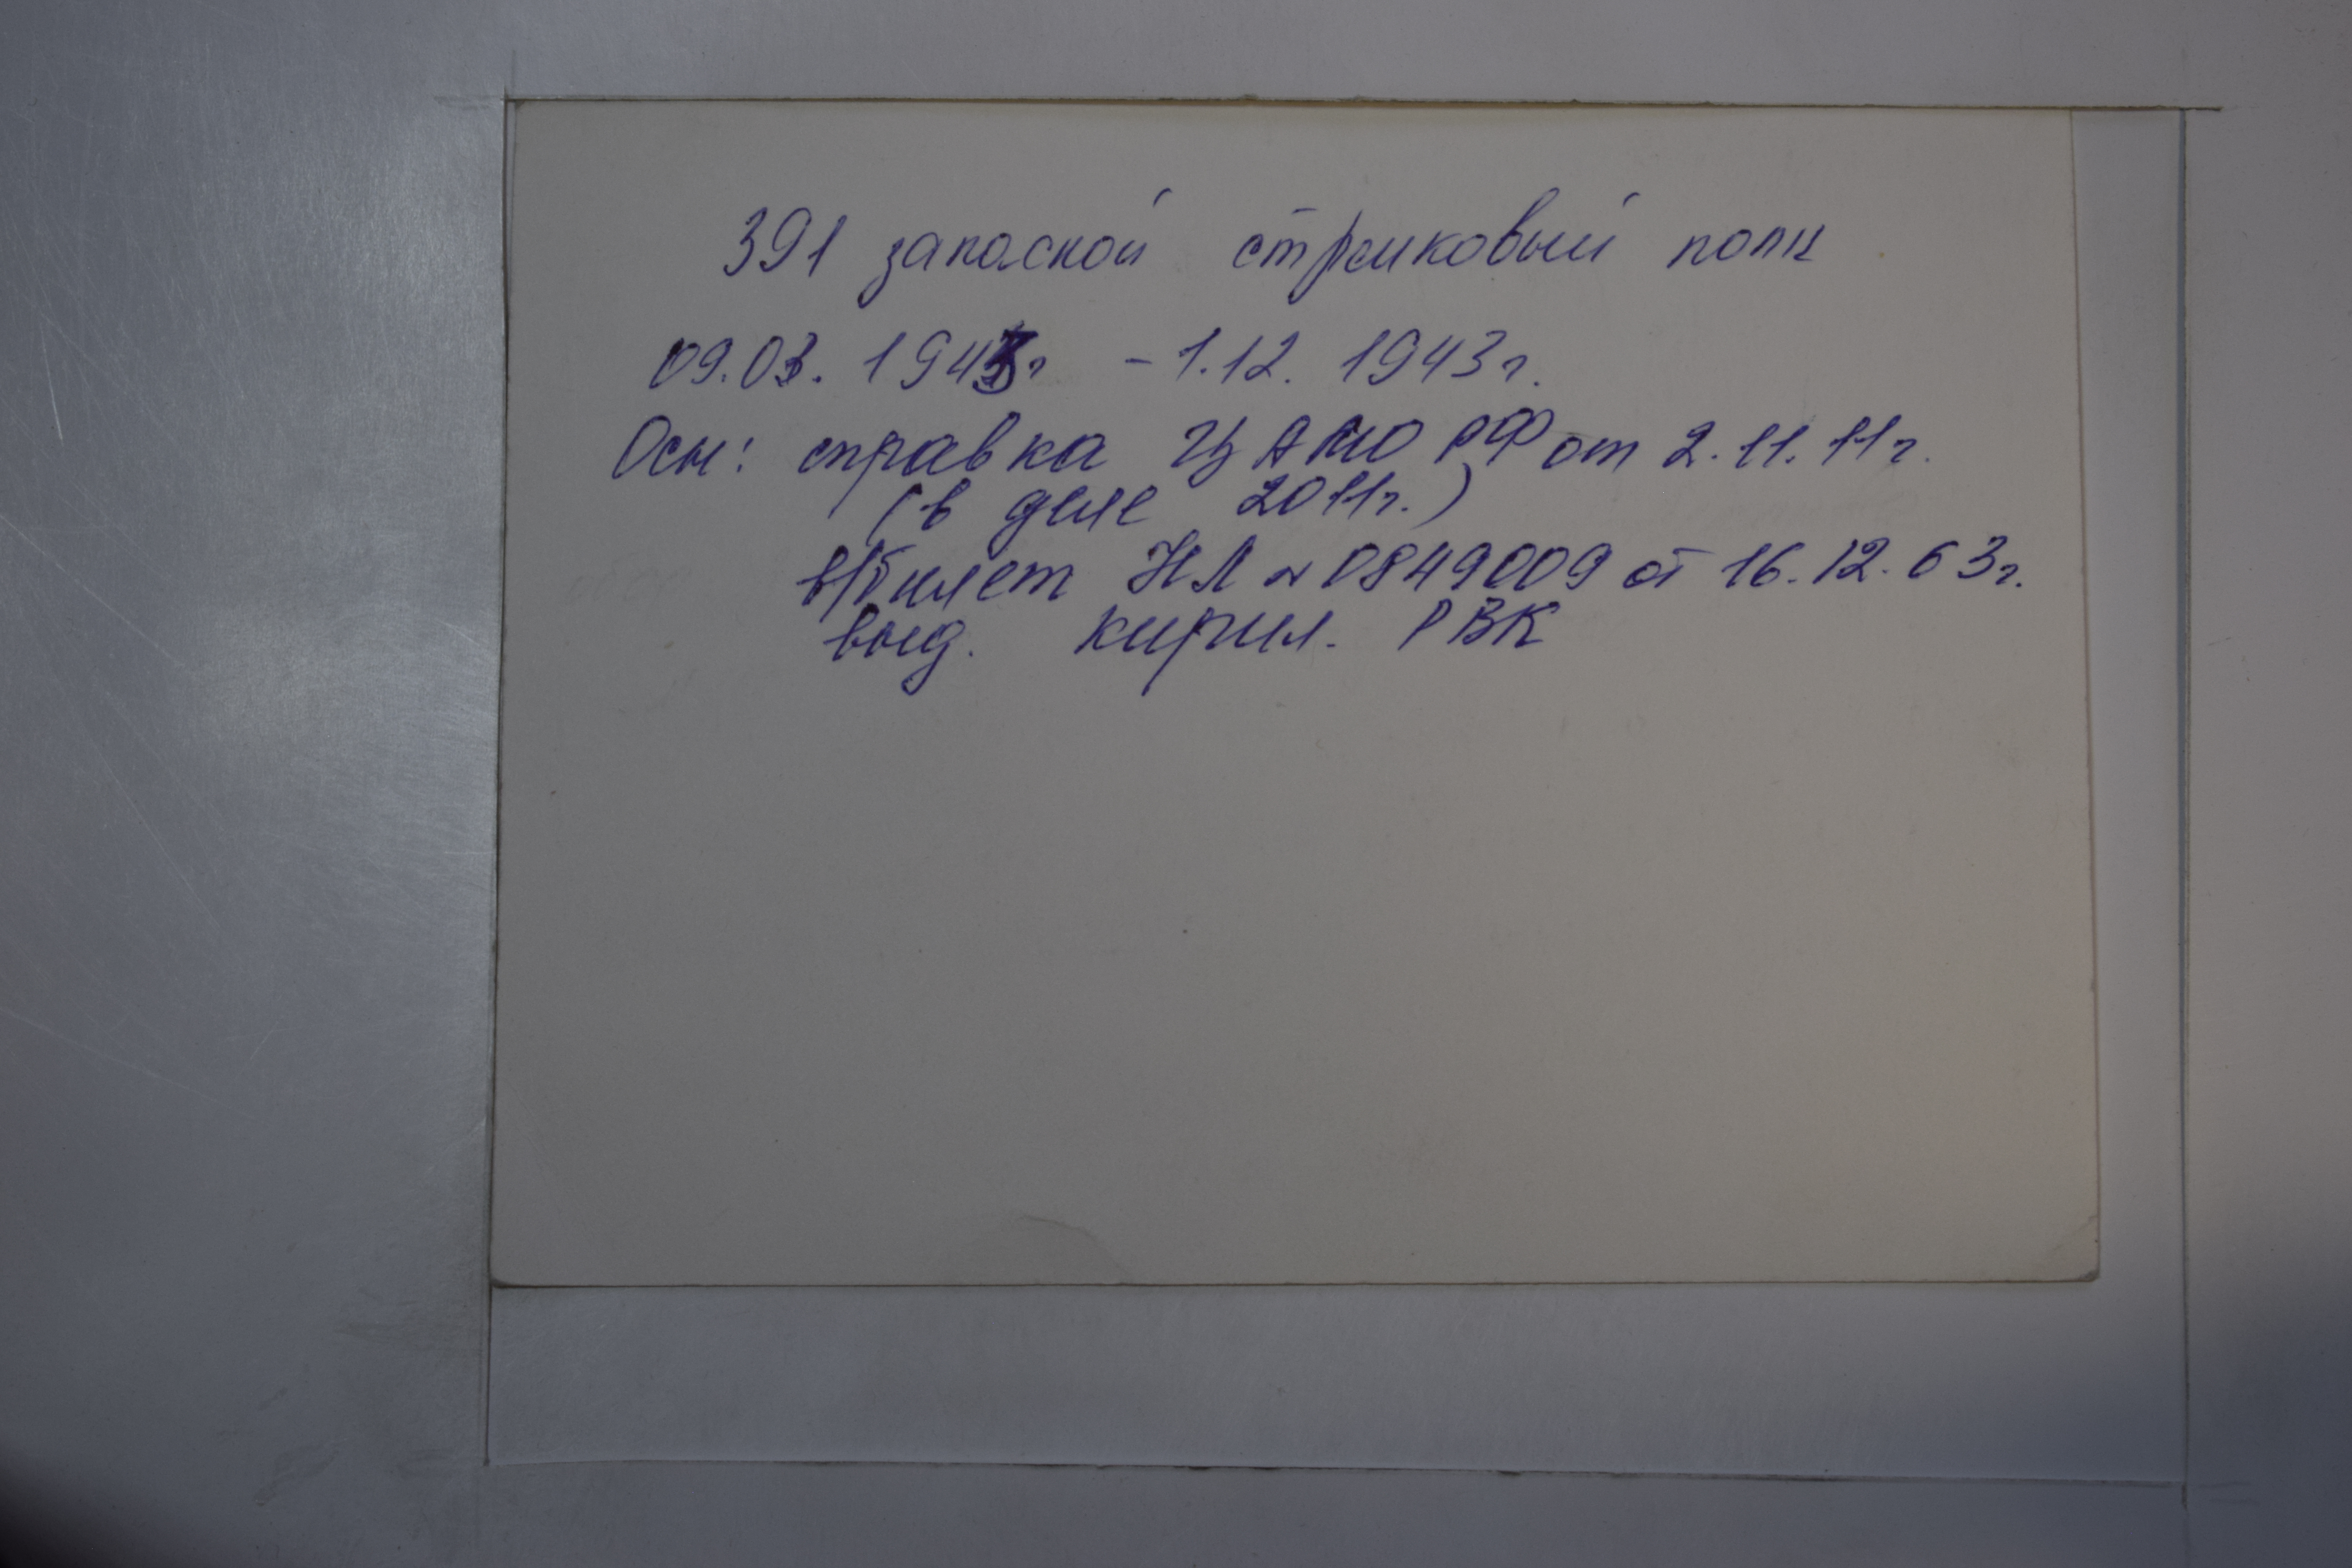 391 запасной стрелковый полк
09.03. 1943г - 1.12. 1943г.
Осн: справка ЦАМО РФ от 2.11.11г.
(в деле 2011г.)
в/билет НЛ № 0849009 от 16.12.63г.
выд. Кирил. РВК